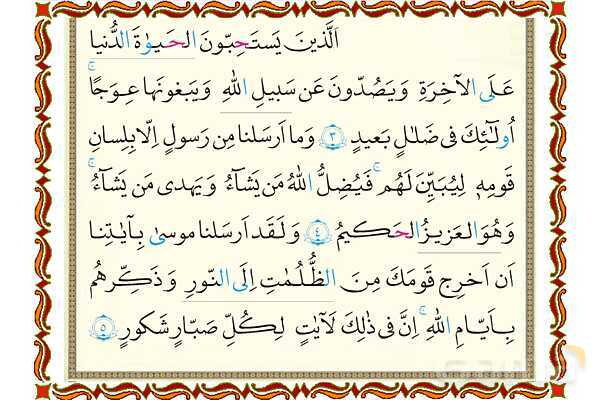 اَلَّذينَ يَستَحِبّونَ الحَيوٰةَ الدُّنيا
عَلَى الآخِرَةِ وَيَصُدّونَ عَن سَبيلِ اللّٰهِ وَيَبغونَها عِوَجًا ۚ
اُولٰئِكَ فى ضَلٰلٍ بَعيدٍ ﴿٣﴾ وَما اَرسَلنا مِن رَسولٍ اِلّا بِلِسانِ
قَومِهٖ لِيُبَيِّنَ لَهُم ۚ فَيُضِلُّ اللّٰهُ مَن يَشآءُ وَيَهدى مَن يَشآءُ ۚ
وَهُوَ العَزيزُ الحَكيمُ ﴿٤﴾ وَلَقَد اَرسَلنا موسىٰ بِـآيٰتِنا
اَن اَخرِج قَومَكَ مِنَ الظُّلُمٰتِ اِلَى النّورِ وَذَكِّرهُم
بِاَيّامِ اللّٰهِ ۚ اِنَّ فى ذٰلِكَ لَآيٰتٍ لِكُلِّ صَبّارٍ شَكورٍ ﴿٥﴾